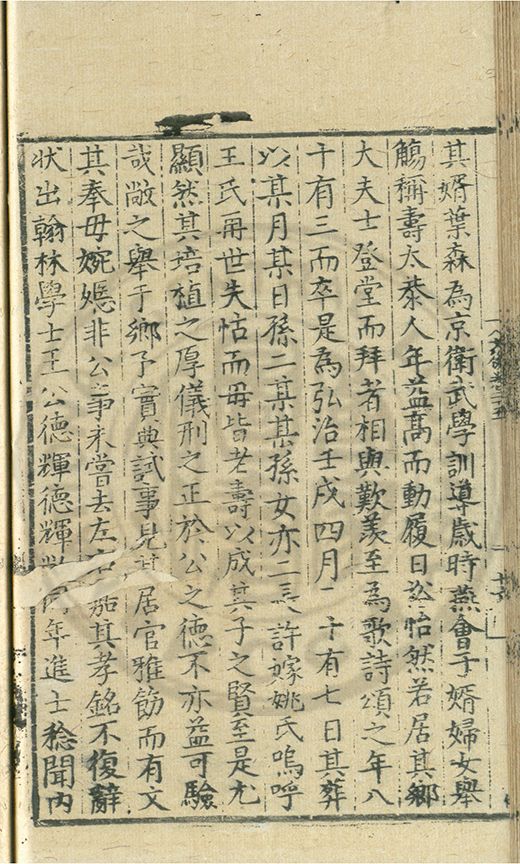 其婿葉森為京衛武學訓導歲時燕會子婿婦女舉
觴稱壽太恭人年益高而動履日裕怡然若居其鄉
大夫士登堂而拜者相與歎羨至為歌詩頌之年八
十有三而卒是為弘治壬戌四月二十有七日其葬
以某月某日孫二某某孫女亦二長許嫁姚氏嗚呼
王氏再世失怙而毋皆老壽以成其子之賢至是尤
顯然其培植之厚儀刑之正於公之德不亦益可驗
哉敞之舉于鄉予實典試事見其居官雅飭而有文
其奉毋婉㜻非公事未嘗去左右嘉其孝銘不復辭
狀出翰林學士王公德輝德輝同年進士稔聞內